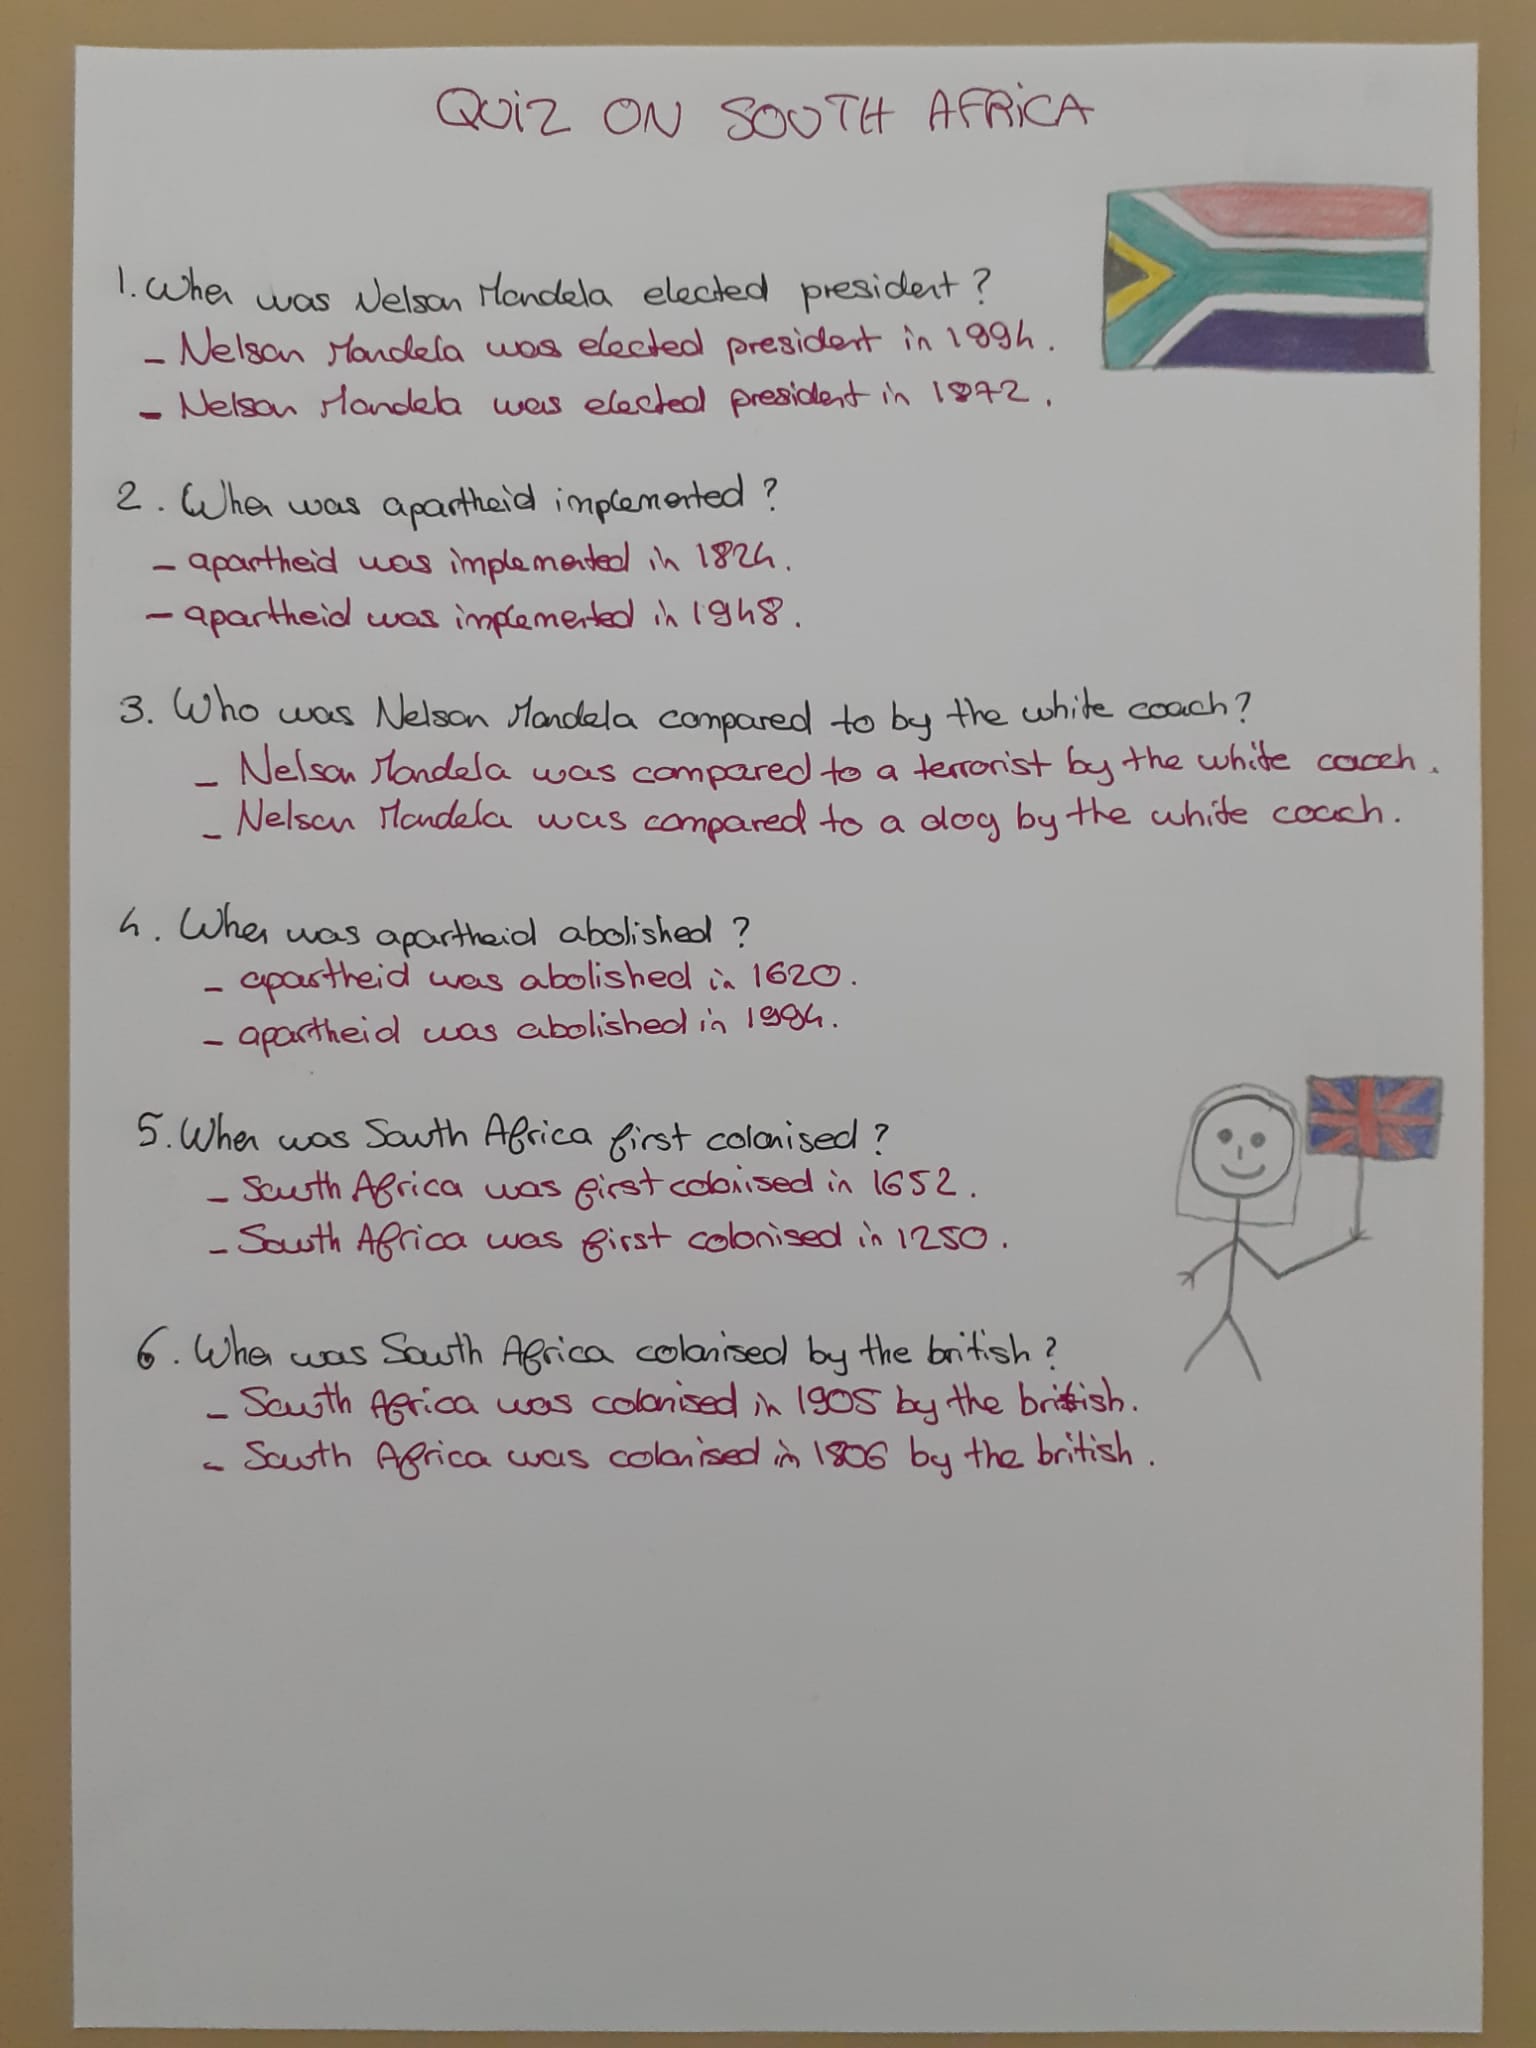 QUiZ ON SOUTH AFRiCA
1. When was Nelson Mandela elected president ?
- Nelson Mandela was elected president in 1994.
- Nelson Mandela was elected president in 1972.
2. When was apartheid implemented ?
- apartheid was implemented in 1824.
- apartheid was implemented in 1948.
3. Who was Nelson Mandela compared to by the white coach ?
- Nelson Mandela was compared to a terrorist by the white coach.
- Nelson Mandela was compared to a dog by the white coach.
4. When was apartheid abolished ?
- apartheid was abolished in 1620.
- apartheid was abolished in 1994.
5. When was South Africa first colonised ?
- South Africa was first colonised in 1652.
- South Africa was first colonised in 1250.
6. When was South Africa colonised by the british ?
- South Africa was colonised in 1905 by the british.
- South Africa was colonised in 1806 by the british.